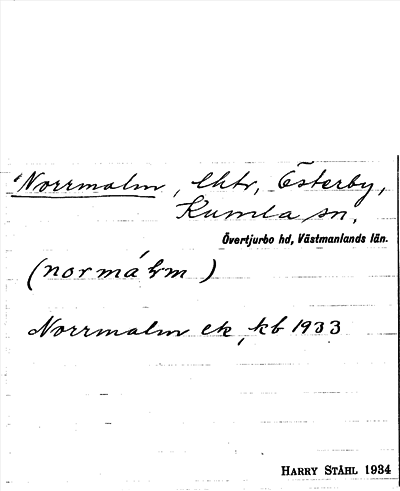 Norrmalm, lht, Österby,
Kumla sn.
Övertjurbo hd, Västmanlands län.
(normálm)
Norrmalm ek, kb 1933
HARRY STÅHL 1934